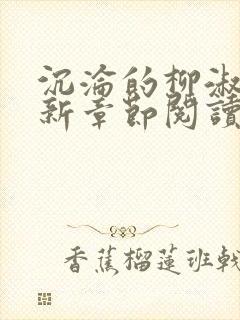 沉淪的柳淑
新章節閱讀
香蕉榴蓮班戟